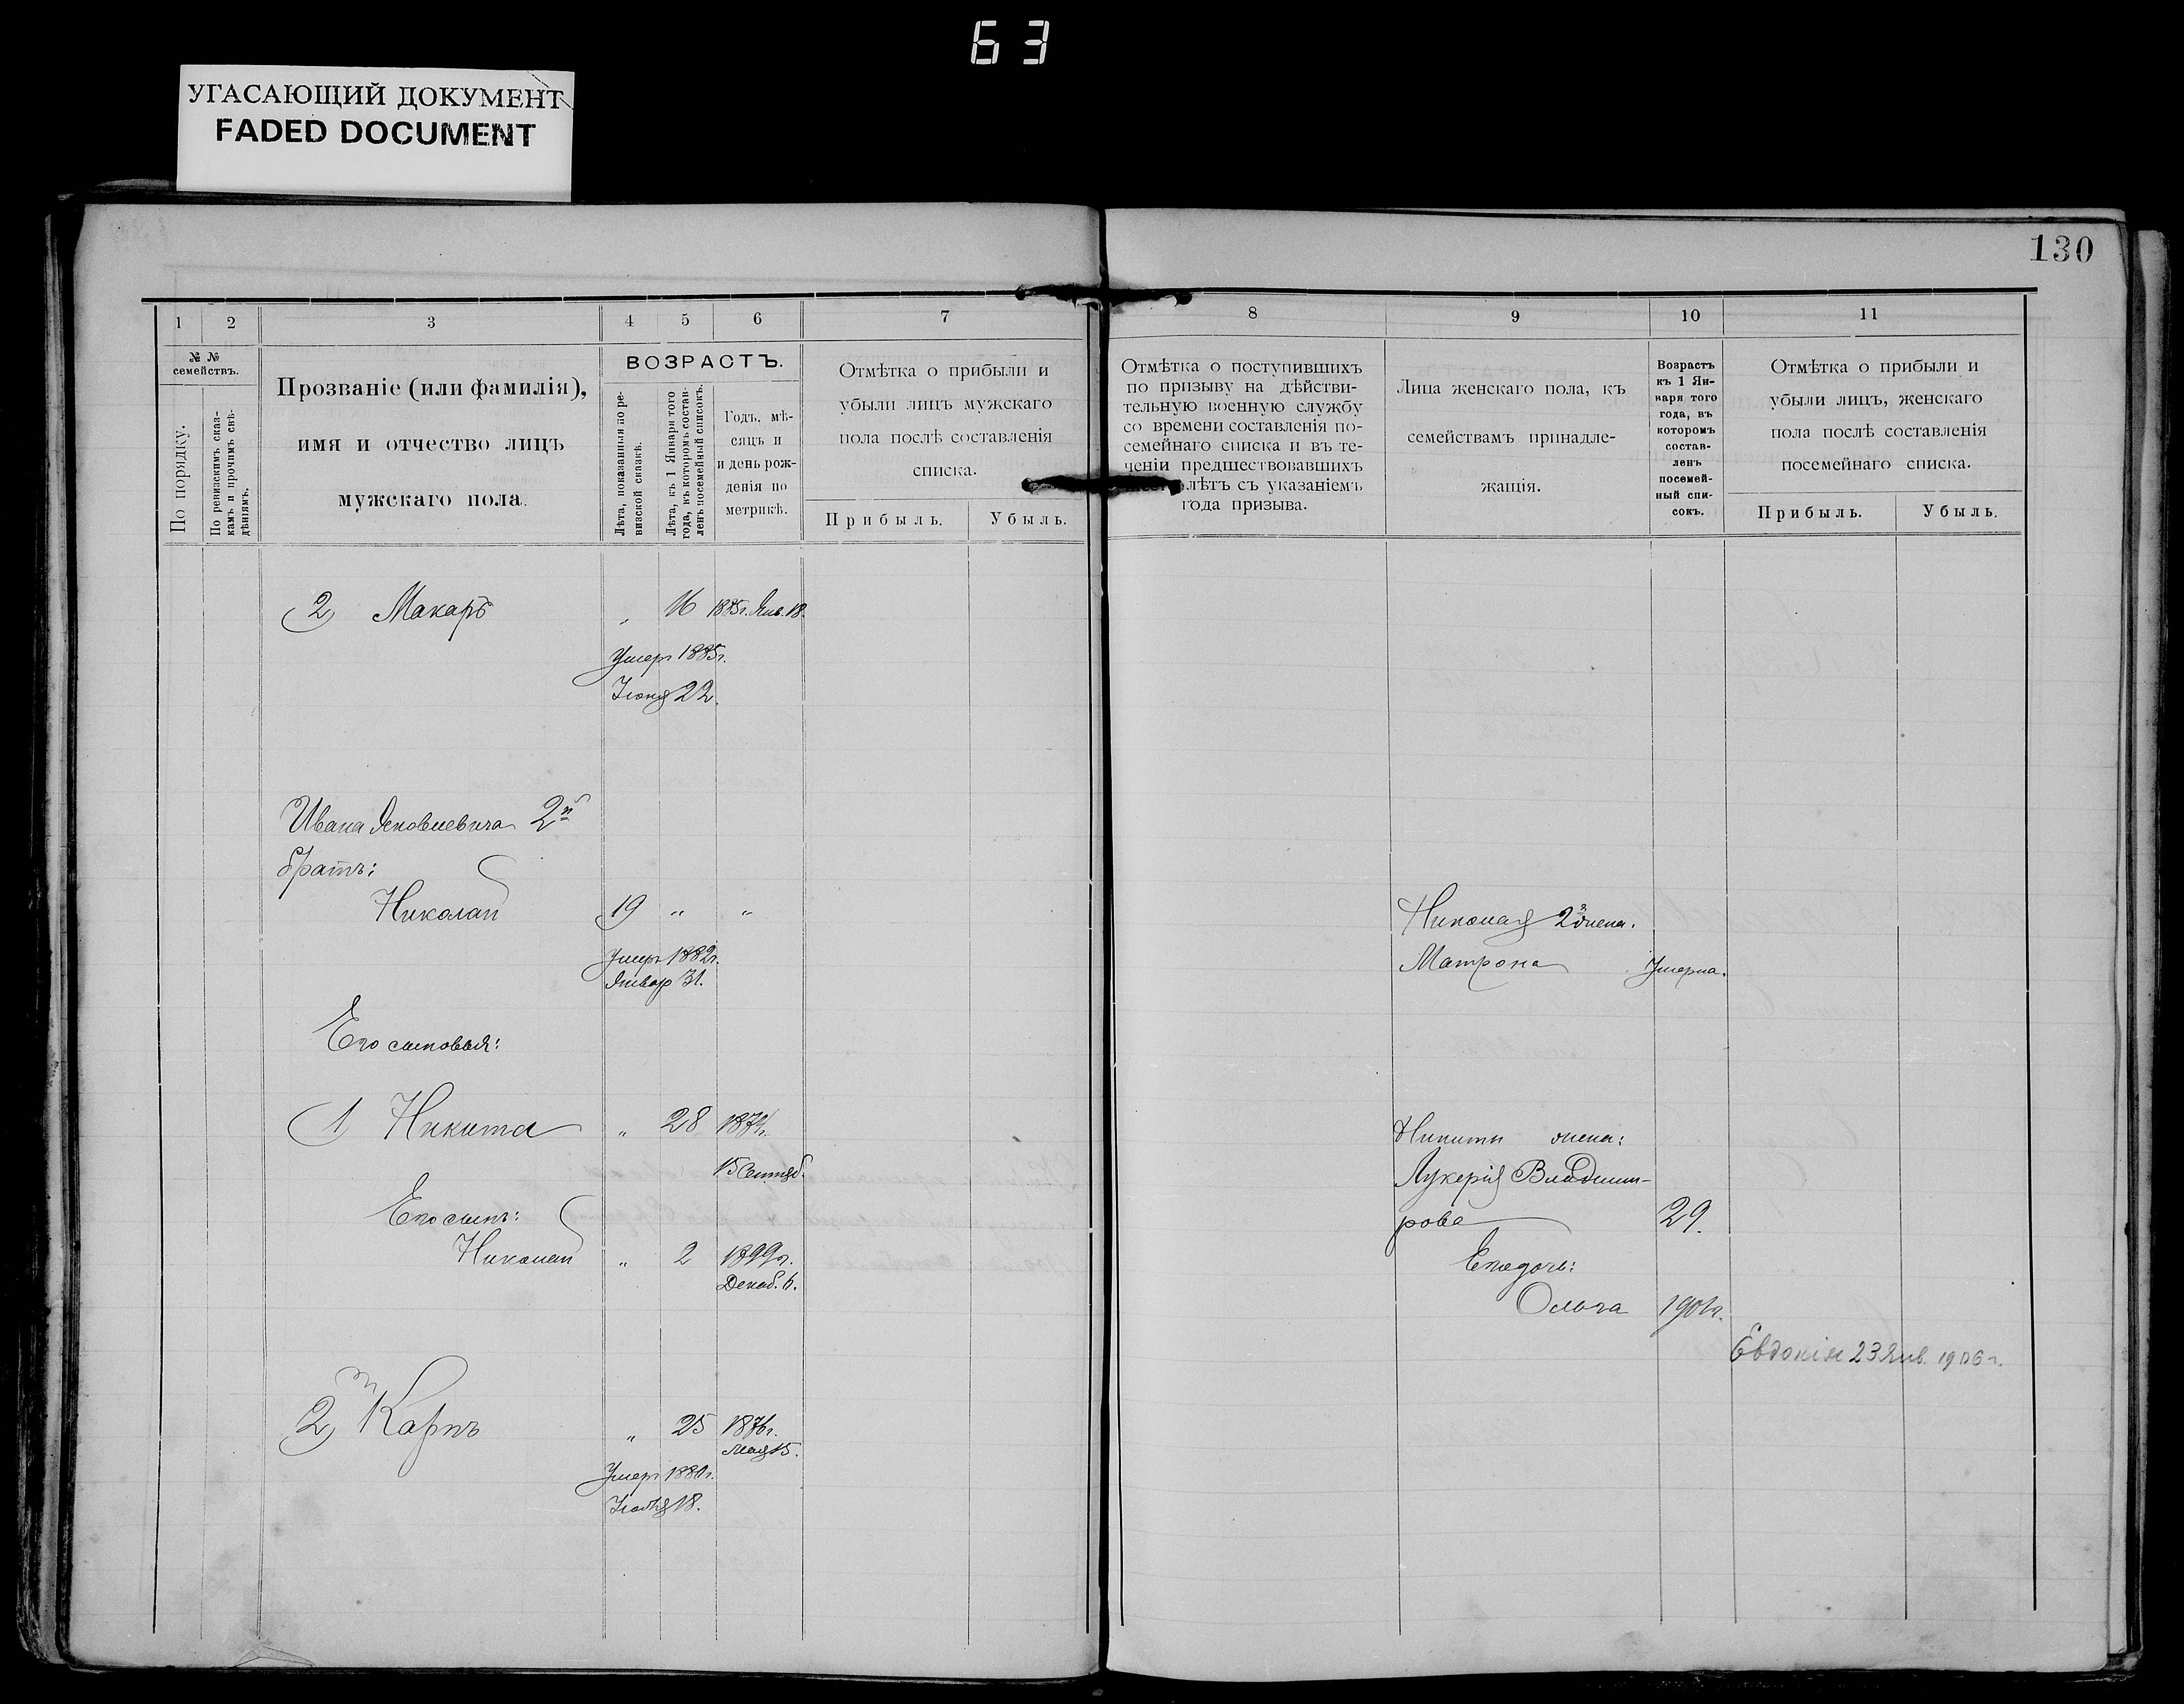 63
УГАСАЮЩИЙ ДОКУМЕНТ
FADED DOCUMENT
130
1 2 3 4 5 6 7
№ №
семействъ.
По порядку.
По ревизскимъ сказ-
камъ и прочимъ свѣ-
дѣніямъ.
Прозваніе (или фамилія),
имя и отчество лицъ
мужскаго пола.
ВОЗРАСТЪ.
Лѣта, показанныя по ре-
визской сказкѣ.
Лѣта, къ 1 Января того
года, въ которомъ состав-
ленъ посемейный списокъ.
Годъ, мѣ-
сяцъ и
и день рож-
денія по
метрикѣ.
Отмѣтка о прибыли и
убыли лицъ мужскаго
пола послѣ составленія
списка.
Прибыль. Убыль.
2) Макаръ „ 16 1885г. Янв. 18.
Умеръ 1885г.
Іюня 22.
Ивана Яковлевича 2й
братъ:
Николай 19 „ „
Умеръ 1882г.
Январ 31.
Его сыновья:
1) Никита „ 28 187
15 Сентяб.
Его сынъ:
Николай „ 2 1899г.
Декаб. 6.
2) Карпъ „ 25 1876г.
Мая 15.
Умеръ 188
18.
8 9 10 11
Отмѣтка о поступившихъ
по призыву на дѣйстви-
тельную военную службу
со времени составленія по-
семейнаго списка и въ те-
ченіи предшествовавшихъ
лѣтъ съ указаніемъ
года призыва.
Лица женскаго пола, къ
семействамъ принадле-
жащія.
Возрастъ
къ 1 Ян-
варя того
года, въ
которомъ
состав-
ленъ
посемей-
ный спи-
сокъ.
Отмѣтка о прибыли и
убыли лицъ, женскаго
пола послѣ составленія
посемейнаго списка.
Прибыль. Убыль.
Николая 2я жена.
Матрона Умерла.
Никиты жена:
Лукерія Владими-
рова 29.
Его дочь:
Ольга 1901г.
Евдокія 23 Янв. 1906 г.